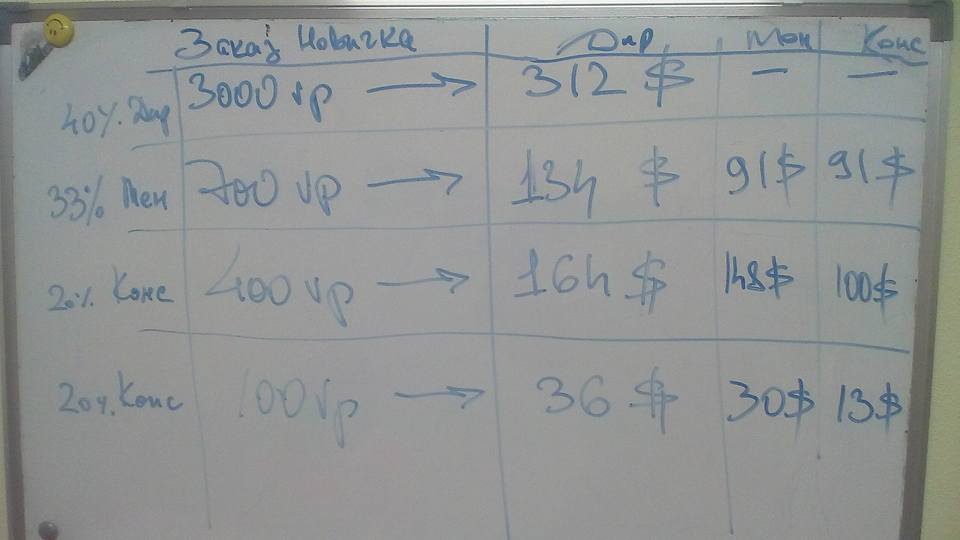 Заказ Новичка Дир Мен Конс
40% Дир 3000 vp → 312 $ — —
33% Мен 700 vp → 134 $ 91$ 91$
20% Конс 400 vp → 164 $ 148$ 100$
20% Конс 100 vp → 36 $ 30$ 13$